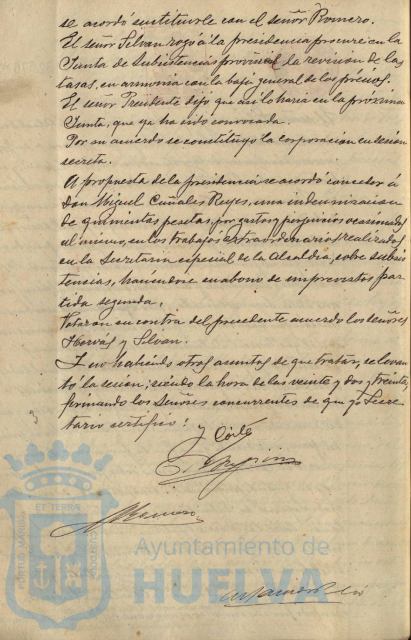 se acordó sustituirle con el señor Romero.
El señor Silvan rogó á la presidencia procure en la
Junta de Subsistencias provincial la revision de las
tasas, en armonia con la baja general de los precios.
El señor Presidente dijo que asi lo haria en la próxima
Junta, que ya ha sido convocada.
Por su acuerdo se constituyó la corporacion en sesion
secreta.
A propuesta de la presidencia se acordó conceder á
Don Miguel Cañales Reyes, una indemnizacion
de quinientas pesetas, por gastos y perjuicios ocasionados
al mismo, en los trabajos extraordinarios realizados
en la Secretaria especial de la Alcaldia, sobre subsis
tencias, haciendose en abono de imprevistos par
tida segunda.
Votaron en contra del precedente acuerdo los señores
Hervás y Silvan.
Y no habiendo otros asuntos de que tratar, se levan
tó la sesion; siendo la hora de las veinte y dos y treinta,
firmando los Señores concurrentes de que yo Secre
tario certifico:
ET TERRAE
PORTUS MARIS
CUSTODIA
Ayuntamiento de
HUELVA